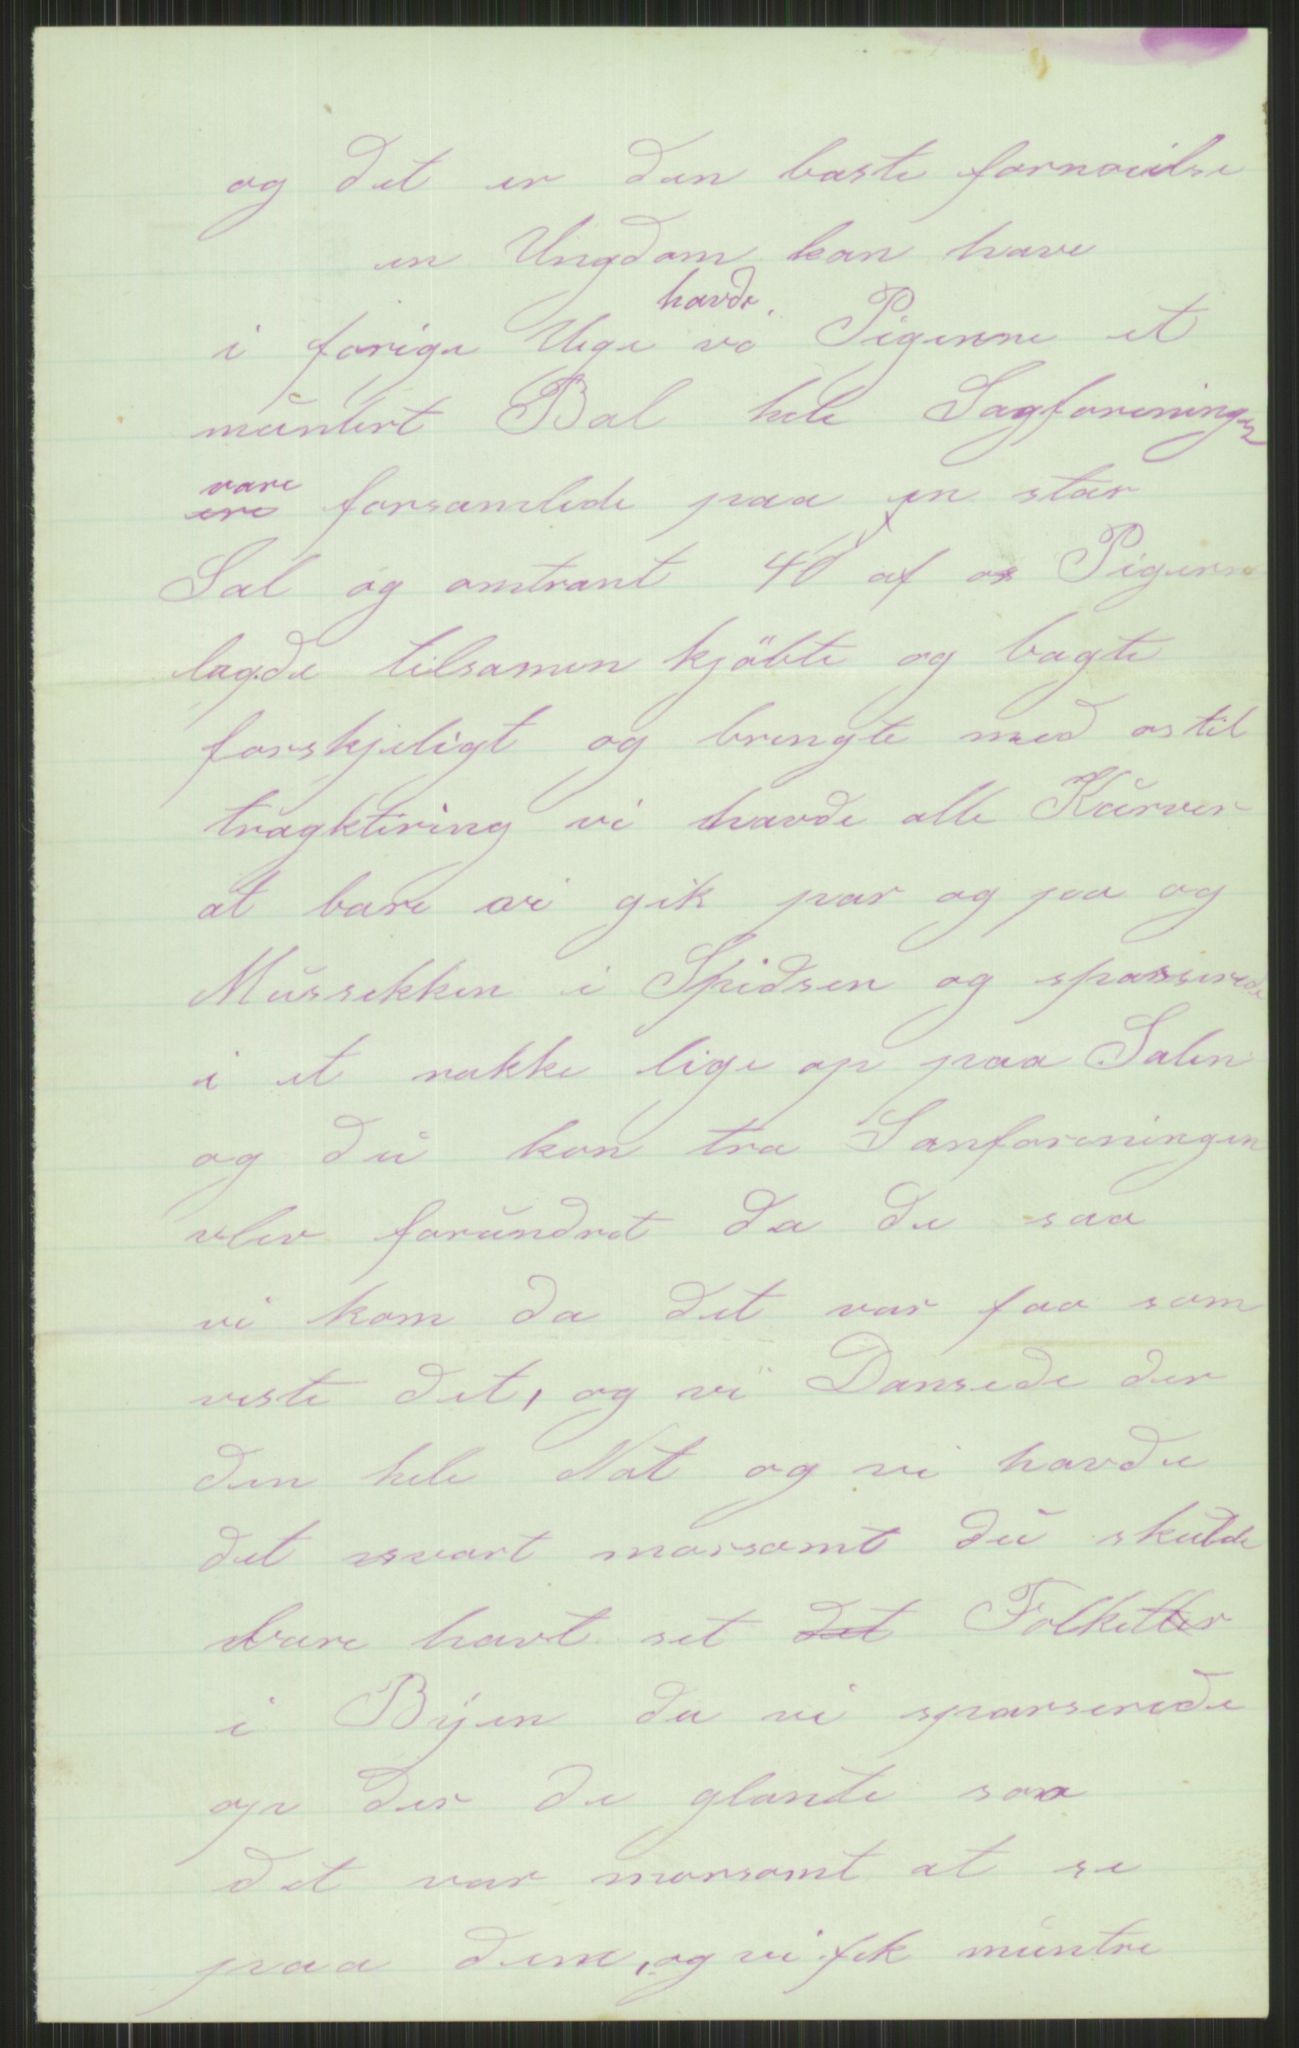 og det er den bæste fornøielse
en Ungdom kan have
i forige Uge havde Pigerne et
muntert Bal hele Sagforeningen
vare forsamlede paa en stor
Sal og omtrænt 40 af os Pigerne
lagde tilsamen kjöbte og bagte
forskjeligt og bringte med os til
tragktiring vi havde alle Kurver
at bære vi gik par og par og
Mussekken i Spidsen og spasserede
i et rakke lige op paa Salen
og du kan tro Sanforeningen
blev forundret da de saa
vi kom da det var faa som
viste det, og vi Dansede der
den hele Nat og vi havde
det svart morsomt du skulde
bare havt set det Folket
i Byen da vi spasserede
op der de glante saa
det var morsomt at se
paa dem, og vi fik muntre